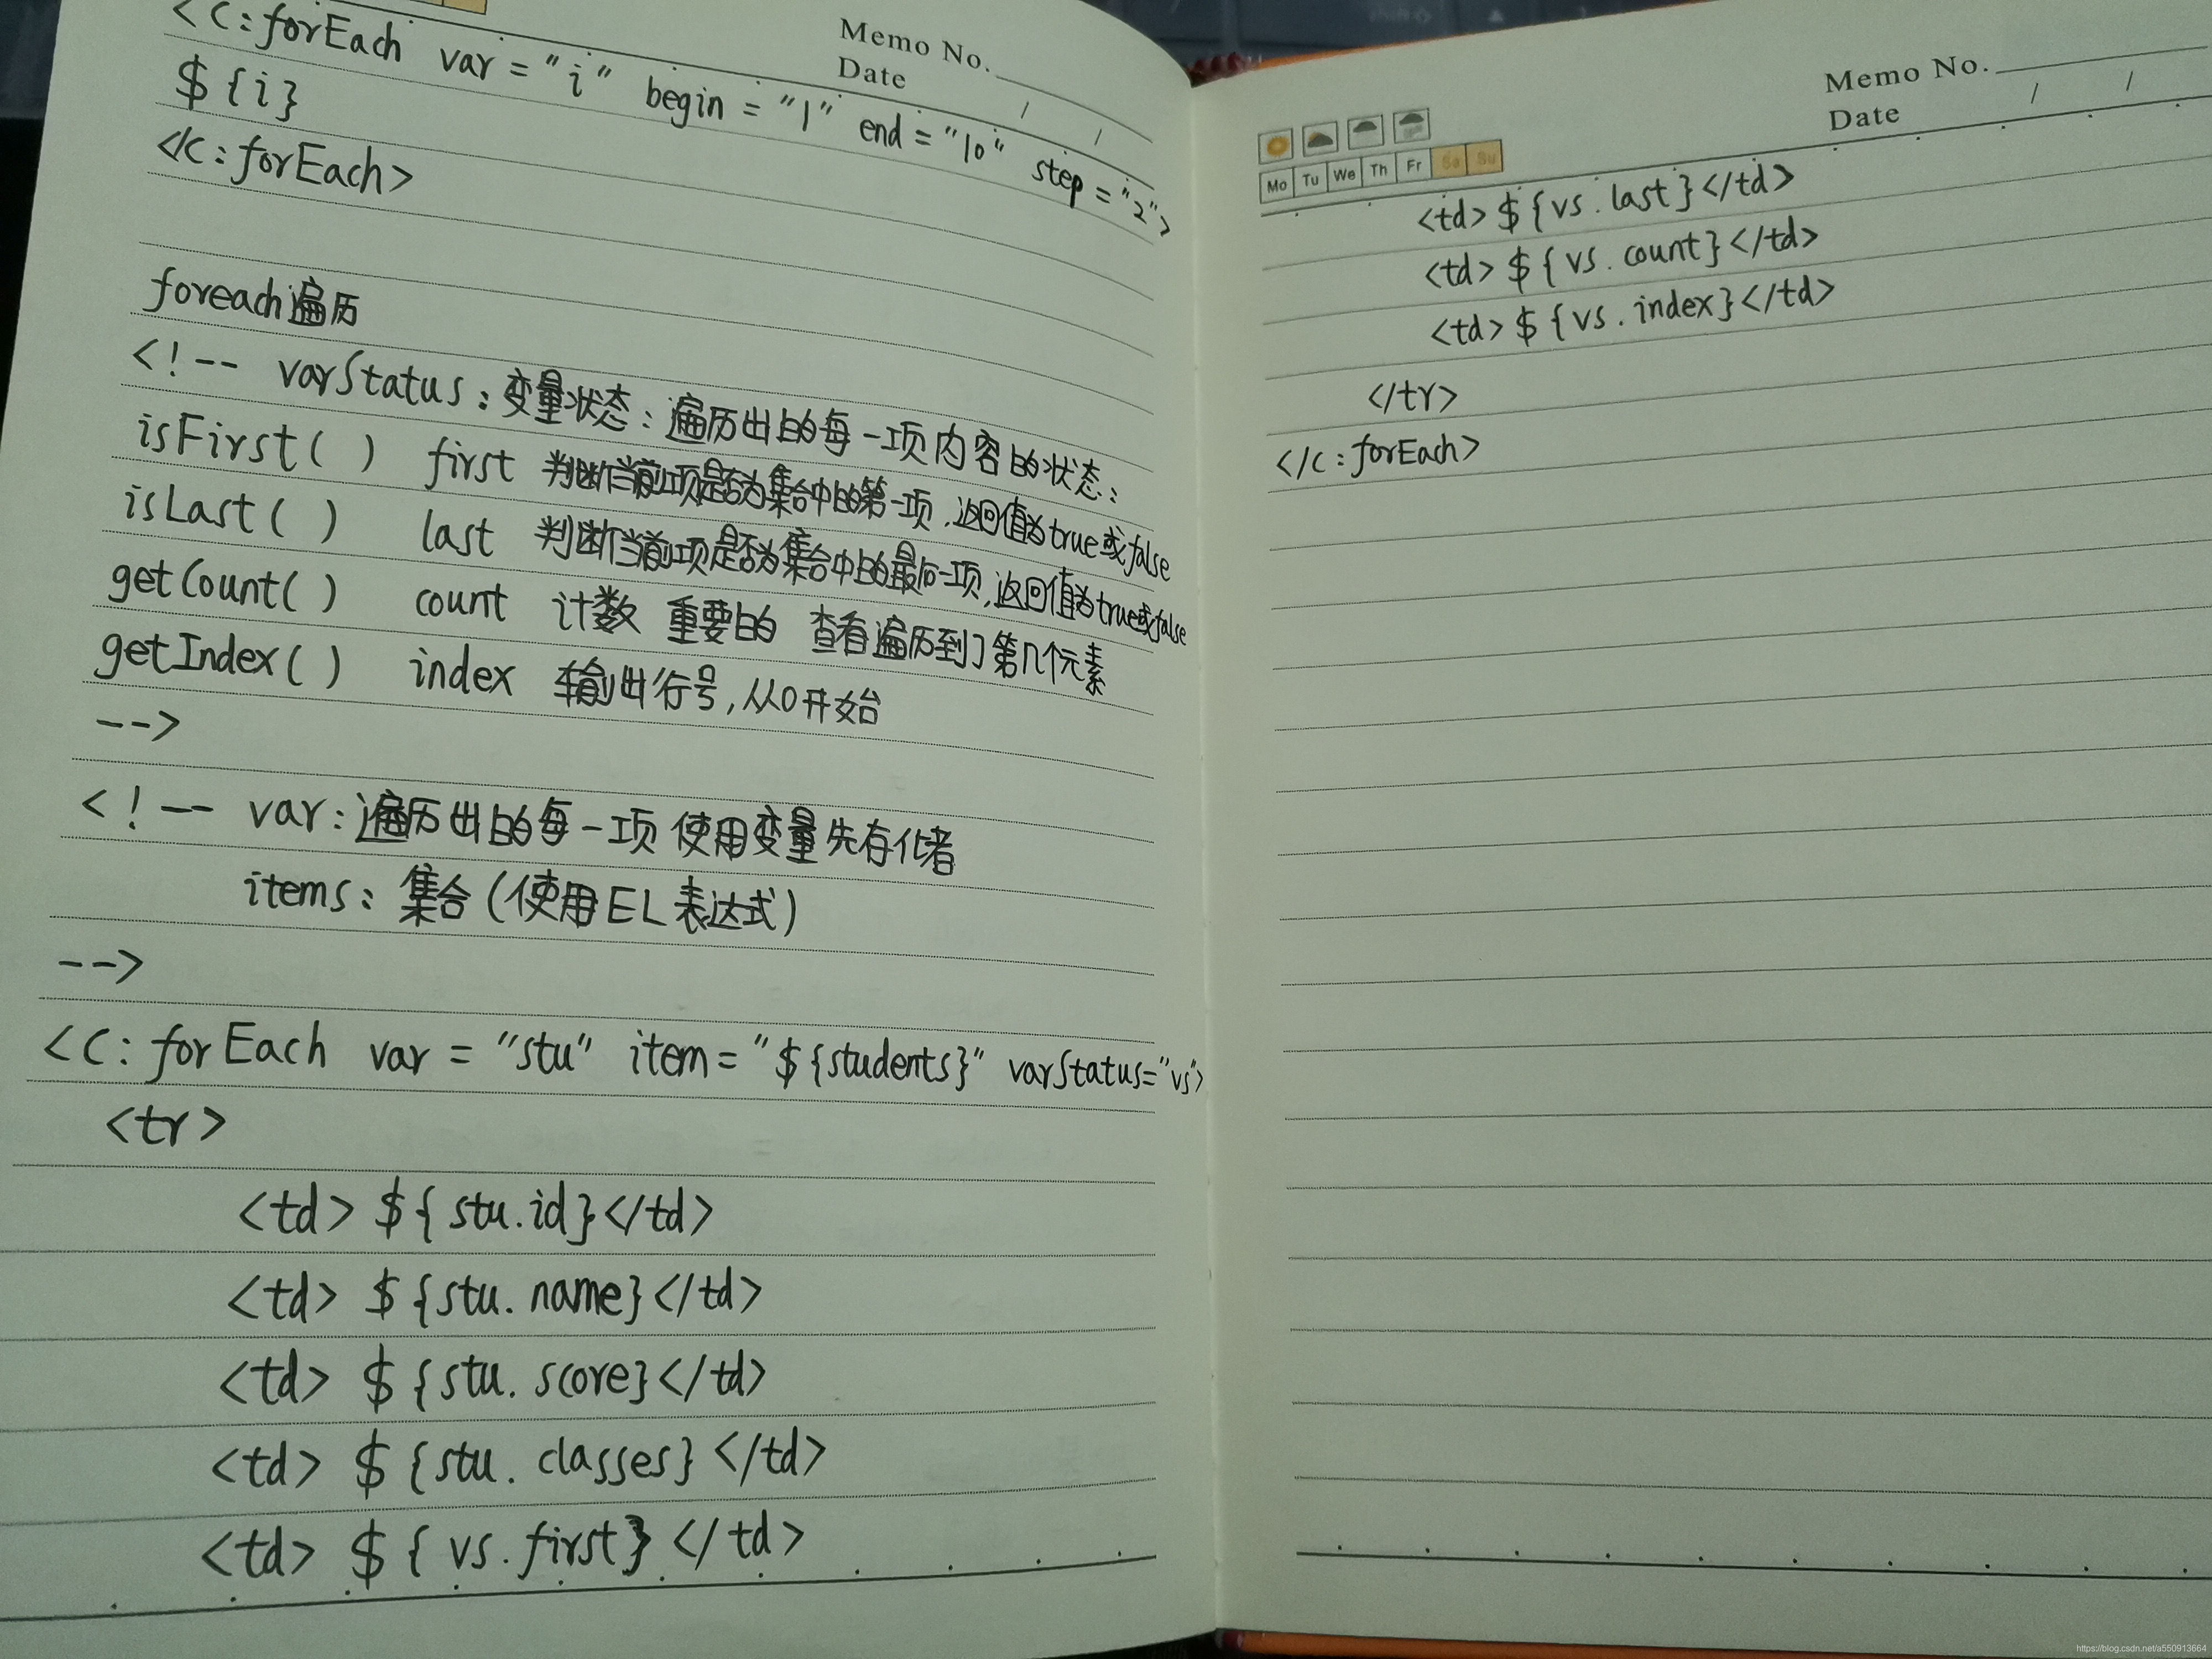 Memo No.
Date / /
<c:forEach var="i" begin="1" end="10" step="2">
${i}
</c:forEach>
foreach遍历
<!-- varStatus:变量状态:遍历出的每一项内容的状态:
isFirst( ) first 判断当前项是否为集合中的第一项,返回值为true或false
isLast( ) last 判断当前项是否为集合中的最后一项,返回值为true或false
getCount( ) count 计数 重要的 查看遍历到了第几个元素
getIndex( ) index 输出行号,从0开始
-->
<!-- var:遍历出的每一项 使用变量先存化者
items:集合(使用EL表达式)
-->
<c:forEach var="stu" item="${students}" varStatus="vs">
<tr>
<td>${stu.id}</td>
<td>${stu.name}</td>
<td>${stu.score}</td>
<td>${stu.classes}</td>
<td>${vs.first}</td>
Memo No.
Date / /
Mo Tu We Th Fr Sa Su
<td>${vs.last}</td>
<td>${vs.count}</td>
<td>${vs.index}</td>
</tr>
</c:forEach>
https://blog.csdn.net/a550913664